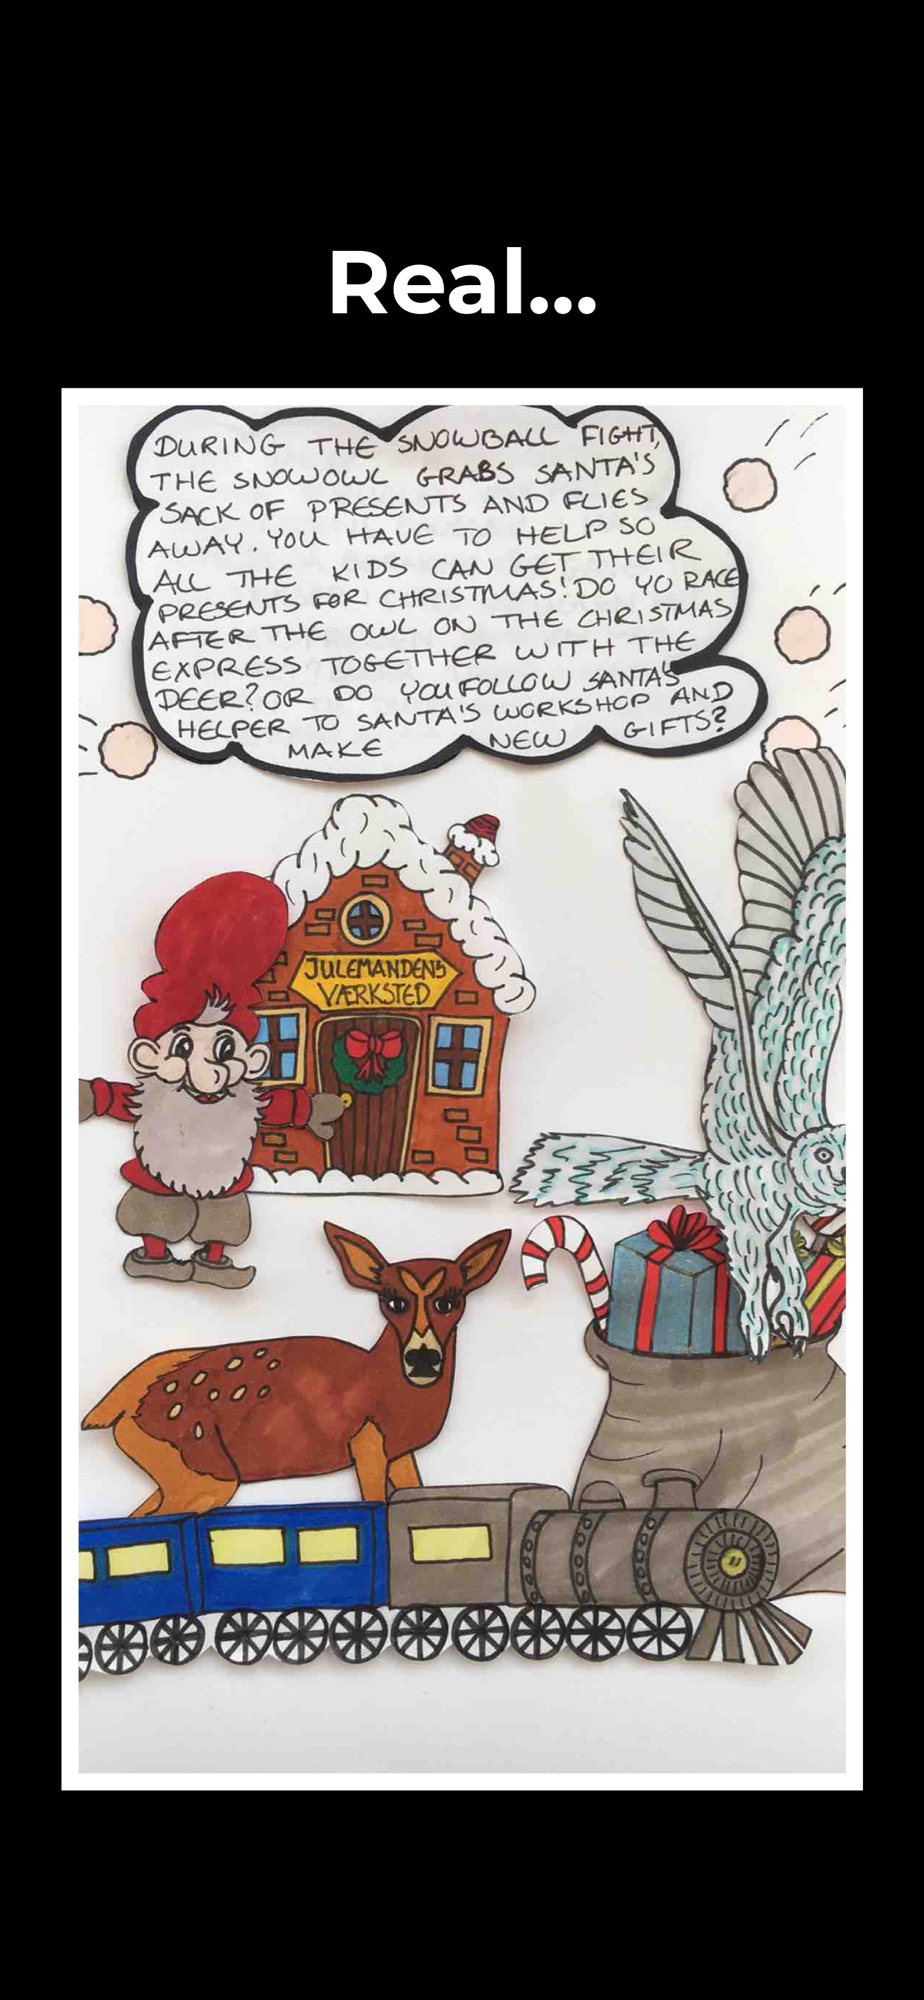 Real...
DURING THE SNOWBALL FIGHT,
THE SNOWOWL GRABS SANTA'S
SACK OF PRESENTS AND FLIES
AWAY. YOU HAVE TO HELP SO
ALL THE KIDS CAN GET THEIR
PRESENTS FOR CHRISTMAS! DO YO RACE
AFTER THE OWL ON THE CHRISTMAS
EXPRESS TOGETHER WITH THE
DEER? OR DO YOU FOLLOW SANTA'S
HELPER TO SANTA'S WORKSHOP AND
MAKE NEW GIFTS?
JULEMANDENS
VÆRKSTED